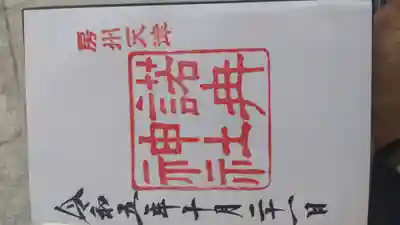 房州天津
諾冉神社
令和五年十月二十一日